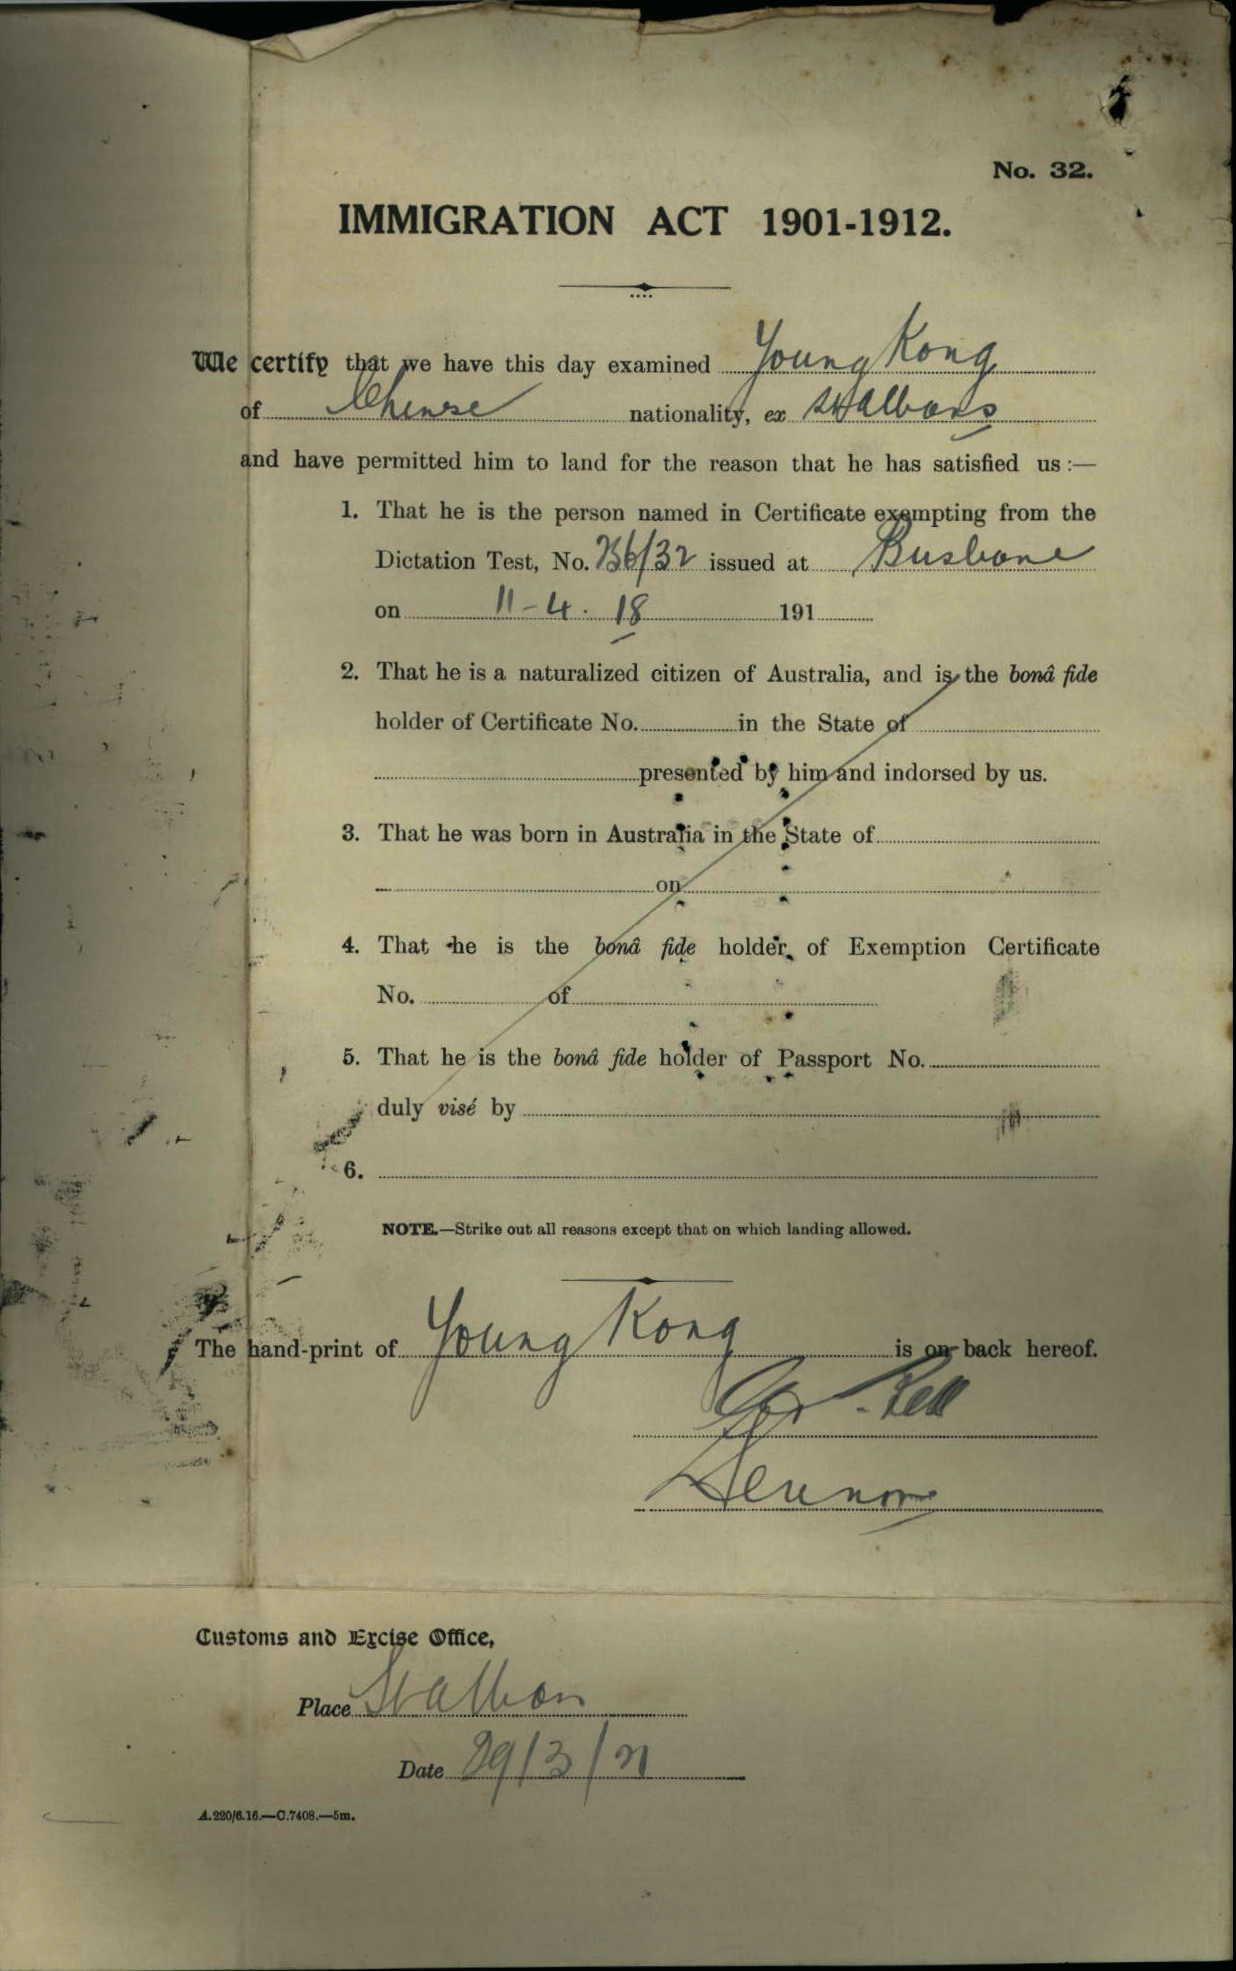 No. 32.
IMMIGRATION ACT 1901-1912.
We certify that we have this day examined Young Kong
of Chinese nationality, ex St Albans
and have permitted him to land for the reason that he has satisfied us :—
1. That he is the person named in Certificate exempting from the
Dictation Test, No. 256/32 issued at Brisbane
on 11-4-18 191
2. That he is a naturalized citizen of Australia, and is the bonâ fide
holder of Certificate No. in the State of
presented by him and indorsed by us.
3. That he was born in Australia in the State of
on
4. That he is the bonâ fide holder of Exemption Certificate
No. of
5. That he is the bonâ fide holder of Passport No.
duly visé by
6.
NOTE.—Strike out all reasons except that on which landing allowed.
The hand-print of Young Kong is on back hereof.
Bell
Customs and Excise Office,
Place St Alban
Date 29/3/21
A.220/6.16.—C.7408.—5m.